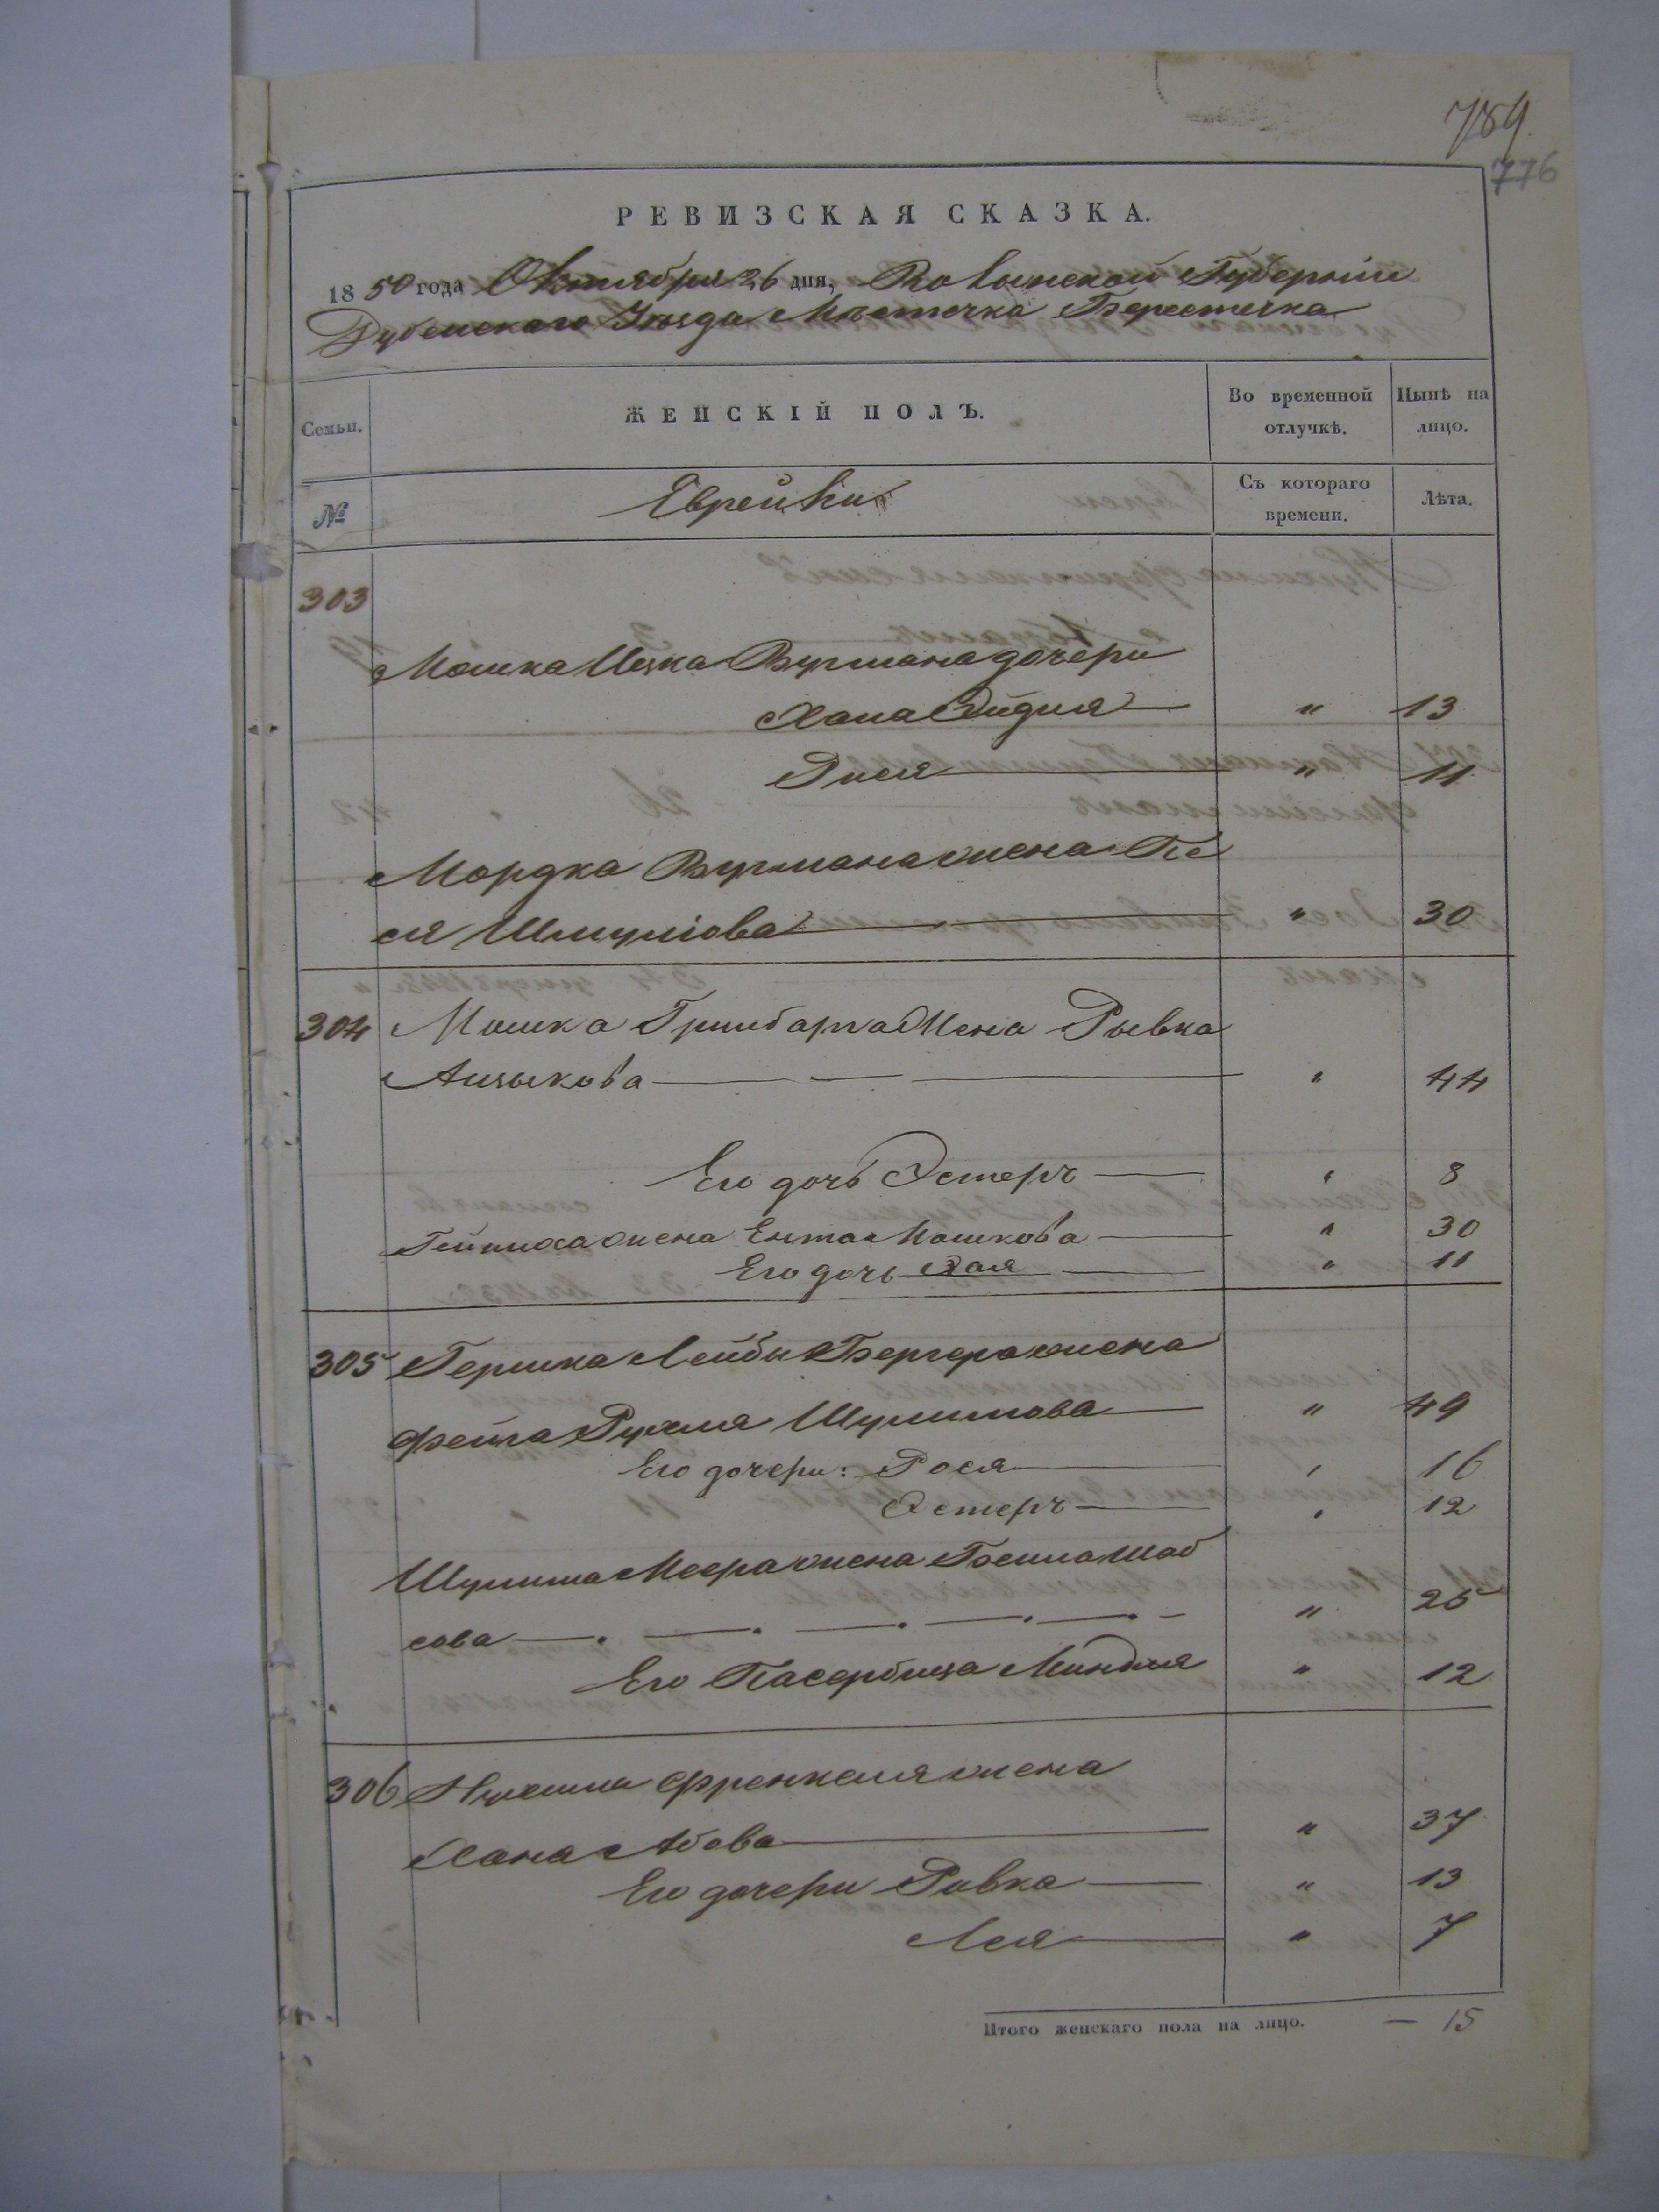 789.
776
РЕВИЗСКАЯ СКАЗКА.
1850 года Октября 26 дня, Волынской Губерніи
Дубенскаго Уѣзда Мѣстечка Берестечка
Семьи.
ЖЕНСКІЙ ПОЛЪ.
Во временной отлучкѣ.
Нынѣ на лицо.
№
Еврейки
Съ котораго времени.
Лѣта.
303
Мошка Ицка Вурмана дочери
Хана Ейдля " 13
Рися " 11
Мордка Вурмана жена Пе
ся Шмулiова " 30
304 Мошка Гринбарга Жена Рывка
Аицыкова " 44
Его дочь Эстеръ " 8
жена Ента Мошкова " 30
Его дочь Хая " 11
305 Гершка Лейбы Бергера жена
Фейга Рухля Шулимова " 49
Его дочери: Рося " 16
Эстеръ " 12
Шулима Меера жена Шаб
сова " 25
Его Пасербица Миндля " 12
306 Нухима Френкеля жена
Хана Абова " 37
Его дочери Ривка " 13
Лея " 7
Итого женскаго пола на лицо. — 15